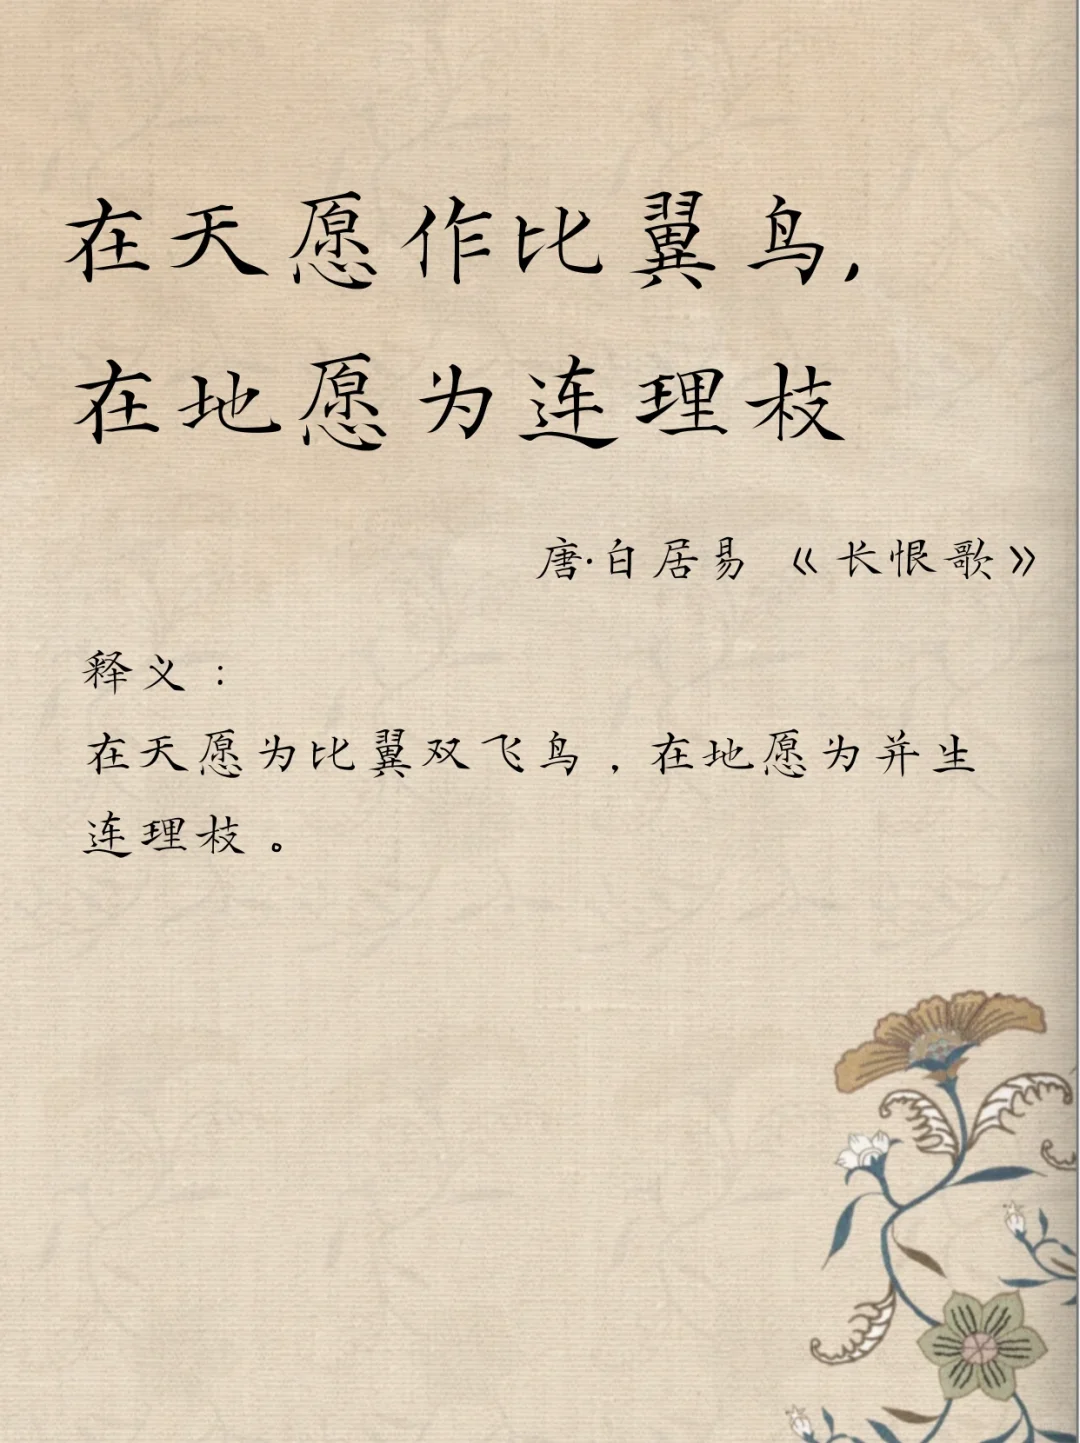 在天愿作比翼鸟,
在地愿为连理枝
唐·白居易 《长恨歌》
释义：
在天愿为比翼双飞鸟，在地愿为并生
连理枝。